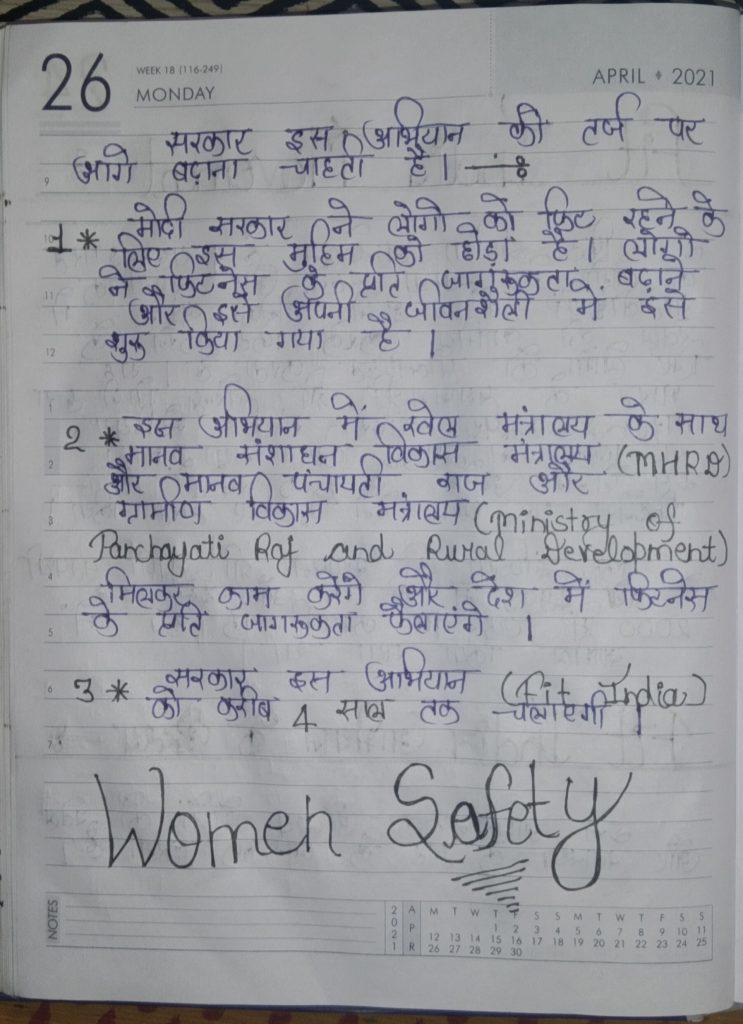 26
WEEK 18 (116-249)
MONDAY
APRIL • 2021
सरकार इस अभियान की तर्ज पर
आगे बढ़ाना चाहती है।
1* मोदी सरकार ने लोगो को फिट रहने के
लिए इस मुहिम को छेड़ा है। लोगो
ने फिटनेस के प्रति जागरुकता बढ़ाने
और इसे अपनी जीवनशैली में इसे
शुरू किया गया है।
2* इस अभियान में खेल मंत्रालय के साथ
मानव संशाधन विकास मंत्रालय (MHRD)
और मानव पंचायती राज और
ग्रामीण विकास मंत्रालय (Ministry of
Panchayati Raj and Rural Development)
मिलकर काम करेंगे और देश में फिटनेस
के प्रति जागरूकता फैलाएंगे।
3* सरकार इस अभियान (Fit India)
को करीब 4 साल तक चलाएगी।
Women Safety
NOTES
2021 APR
M T W T F S S M T W T F S S
1 2 3 4 5 6 7 8 9 10 11
12 13 14 15 16 17 18 19 20 21 22 23 24 25
26 27 28 29 30
9
10
11
12
1
2
3
4
5
6
7